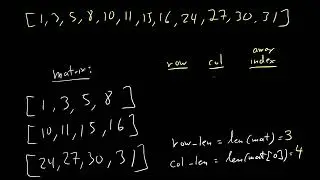 [1,3,5,8,10,11,15,16,24,27,30,31]
matrix:
row col array index
[1, 3, 5, 8]
[10,11,15,16]
[24,27,30,31]
row_len = len(mat)=3
col_len = len(mat[0])=4